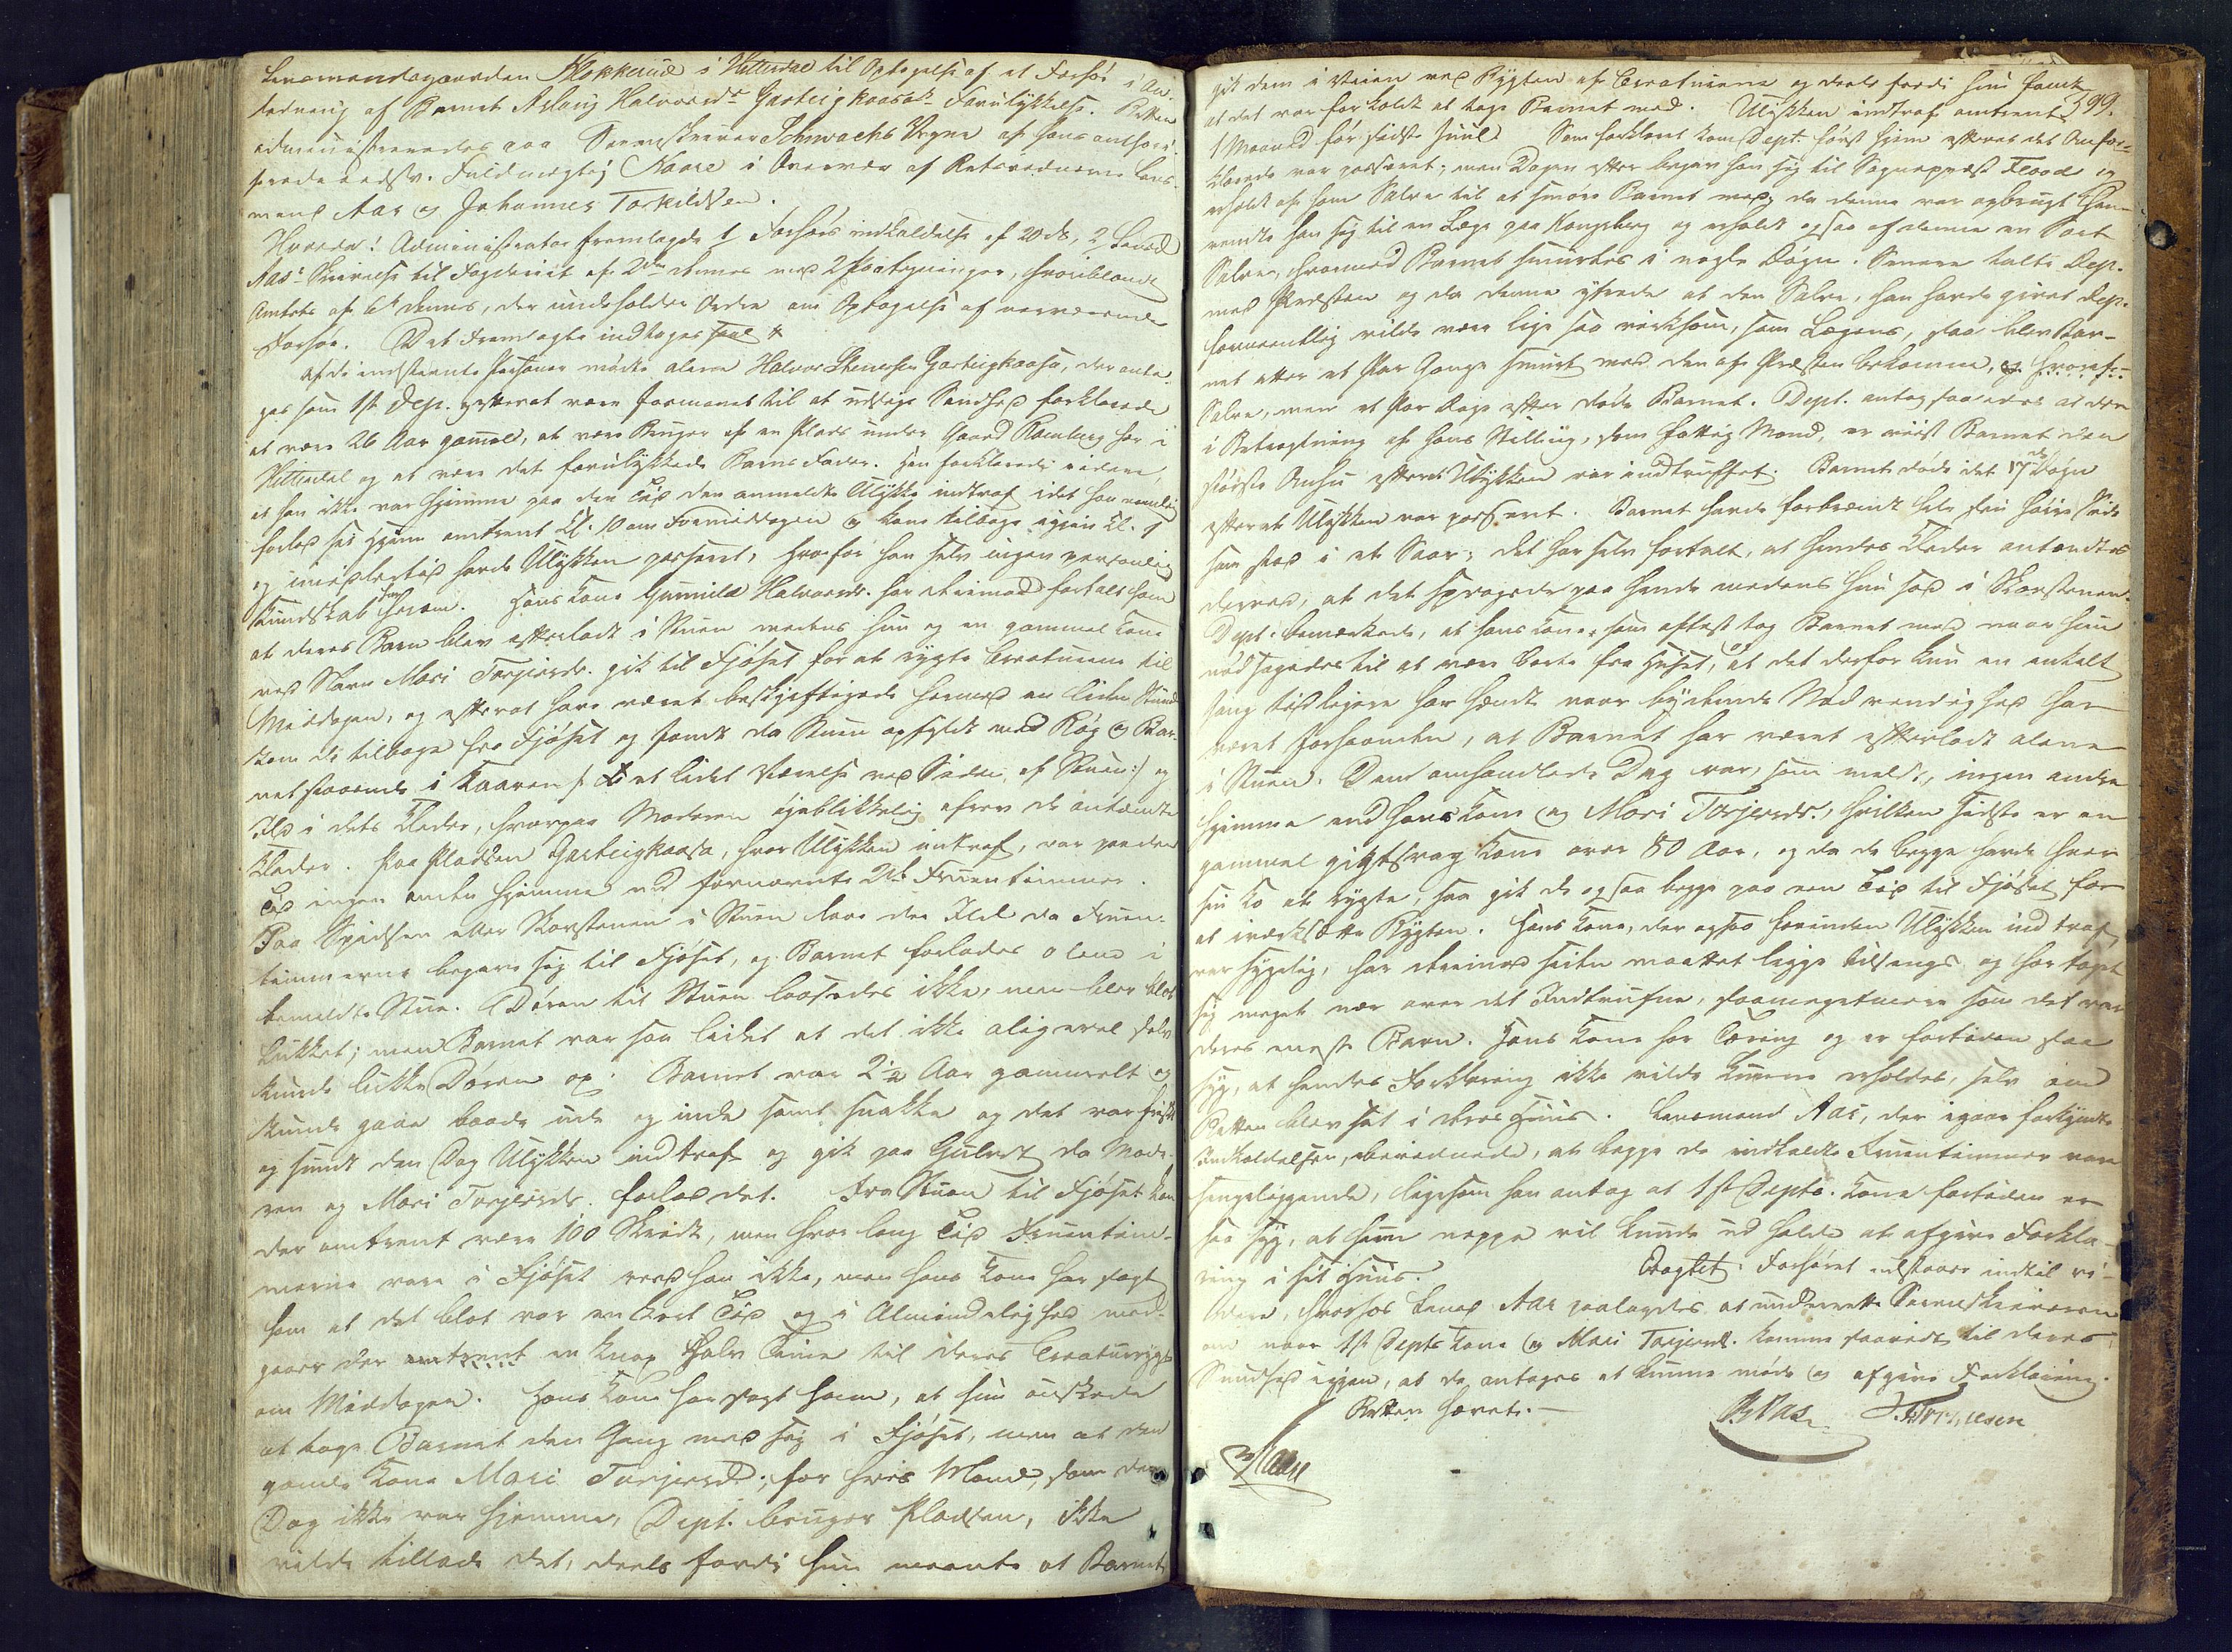 Lensmandsgaarden Klokkerud i Hitterdal til Optagelse af et Forhør i An-
ledning af Barnet Aslaug Halvorsdr Gasteigkaasas Forulykkelse. Retten
administreredes paa Sorenskriver Schwachs Vegne af hans authori-
serede edsv. Fuldmægtig Kaare i Overvær af Retsvidnerne Lens-
mand Aas og Johannes Torkildsen.
Hvorda! Administrator fremlagde 1 Forhørs indkaldelse af 20 ds, 2 Lensmd
Aas's Skrivelse til Fogderiet af 2den dennes med 2 Paategninger, hvoriblandt
Amtets af 6te dennes, der indeholder Ordre om Optagelse af nærværende
Forhør. Det Fremlagte indtages
Af de indstævnte Personer mødte alene Halvor Gasteigkaasa, der anta-
ges som 1ste Dep. Efterat være formanet til at udsige Sandhed forklarede
at være 26 Aar gammel, at være Bruger af en Plads under Gaard Ramberg her i
Hitterdal og at være det forulykkede Barns Fader. Han forklarede videre
at han ikke var hjemme paa den Tid den anmeldte Ulykke indtraf idet han nemlig
forlod sit Hjem omtrent Kl. 10 om Formiddagen og kom tilbage igjen Kl. 1
og imidlertid havde Ulykken passeret, hvorfor han selv ingen personlig
Kundskab har herom. Hans Kone Gunnild Halvorsdr. har derimod fortalt ham
at deres Barn blev efterladt i Stuen medens hun og en gammel Kone
ved Navn Mari Torjersdr. gik til Fjøset for at røgte Creaturene til
Middagen, og efterat have været beskjæftigede hermed en liden Stund
kom de tilbage fra Fjøset og fandt da Stuen opfyldt med Røg og Bar-
net staaende i Kaaven /: et lidet Værelse ved Siden af Stuen :/ og
Ild i dets Klæder, hvorpaa Moderen øjeblikkelig afrev de antændte
Klæder. Paa Pladsen Gasteigkaasa, hvor Ulykken indtraf, var paa den
Tid ingen andre hjemme end fornævnte 2de Fruentimmer.
Paa Spidsen eller Skorstenen i Stuen laae der Ild da Fruen-
timmerne begave sig til Fjøset, og Barnet forlodes alene i
bemeldte Stue. Døren til Stuen laasedes ikke, men blev blot
lukket; men Barnet var saa lidet at det ikke alligevel selv
kunde lukke Døren op. Barnet var 2½ Aar gammelt og
kunde gaae baade ude og inde samt snakke og det var friskt
og sundt den Dag Ulykken indtraf og gik paa Gulvet da Mode-
ren og Mari Torjersdr. forlod det. Fra Stuen til Fjøset kan
der omtrent være 100 Skridt, men hvor lang Tid Fruentim-
merne vare i Fjøset veed han ikke, men hans Kone har sagt
ham at det blot var en kort Tid og i Almindelighed med-
gaaer der omtrent en knap halv Time til deres Creaturrøgt
om Middagen. Hans Kone har sagt ham, at hun ønskede
at tage Barnet den Gang med sig i Fjøset, men at den
gamle Kone Mari Torjersdr., for hvis Mand, som den
Dag ikke var hjemme, Dept. bruger Pladsen, ikke
vilde tillade det, deels fordi hun meente at Barnet
599.
gik dem i Veien ved Røgten af Creaturene og deels fordi hun fandt
at det var for koldt at tage Barnet med. Ulykken indtraf omtrent
1 Maaned før sidste Juul. Som forklaret kom Dept. først hjem efterat det Omfor-
klarede var passeret; men Dagen efter begav han sig til Sognepræst Flood og
erholdt af ham Salve til at smøre Barnet med, da denne var opbrugt hen-
vendte han sig til en Læge paa Kongsberg og erholdt ogsaa af denne en Sort
Salve, hvormed Barnet smurtes i nogle Døgn. Senere talte Dep.
med Præsten og da denne yttrede at den Salve, han havde givet Dep.
formeentlig vilde være lige saa virksom, som Lægens, saa blev Bar-
net atter et Par Gange smurt med den af Præsten bekomne,
Salve, men et Par Dage efter døde Barnet. Dept. antog saa at der
i Betragtning af hans Stilling, som fattig Mand, er viist Barnet den
største Omhu efterat Ulykken var indtruffet. Barnet døde i det 17de Døgn
efterat Ulykken var passeret. Barnet havde forbrændt hele sin høire Side
som stod i et Saar; det har selv fortalt, at hendes Klæder antændtes
derved, at det spragede paa hende medens hun sad i Skorstenen.
Dept. bemærkede, at hans Kone som oftest tog Barnet med naar hun
nødsagedes til at være borte fra Huset, og at det derfor kun en enkelt
Gang tidligere har hændt naar bydende Nødvendighed har
været forhaanden, at Barnet har været efterladt alene
i Stuen. Den omhandlede Dag var, som meldt, ingen andre
hjemme end hans Kone og Mari Torjersdr., hvilken sidste er en
gammel gigtsvag Kone over 80 Aar, og da de begge havde hver
sin Ko at røgte, saa gik de ogsaa begge paa een Tid til Fjøset for
at iværksætte Røgten. Hans Kone, der ogsaa forinden Ulykken indtraf
var sygelig, har derimod siden maattet ligge tilsengs og har taget
sig meget nær over det Indtrufne, saameget mere som det var
deres eneste Barn. Hans Kone har Tæring og er fortiden saa
syg, at hendes Forklaring ikke vilde kunne erholdes, selv om
Retten blev sat i deres Huus. Lensmand Aas, der igaar forkyndte
Indkaldelsen, bevidnede, at begge de indkaldte Fruentimmer vare
sengeliggende, ligesom han antog at 1ste Depts. Kone fortiden er
saa syg, at hun neppe vil kunde udholde at afgive Forkla-
ring i sit Huus. Eragtet: Forhøret udstaaer indtil vi-
dere, hvorhos Lensmd Aas paalagdes at underrette Sorenskriveren
om naar 1ste Depts Kone og Mari Torjersdr. komme saavidt til deres
Sundhed igjen, at de antages at kunne møde og afgive Forklaring.
Retten hævet.—
Aas J. Torkildsen
Kaare